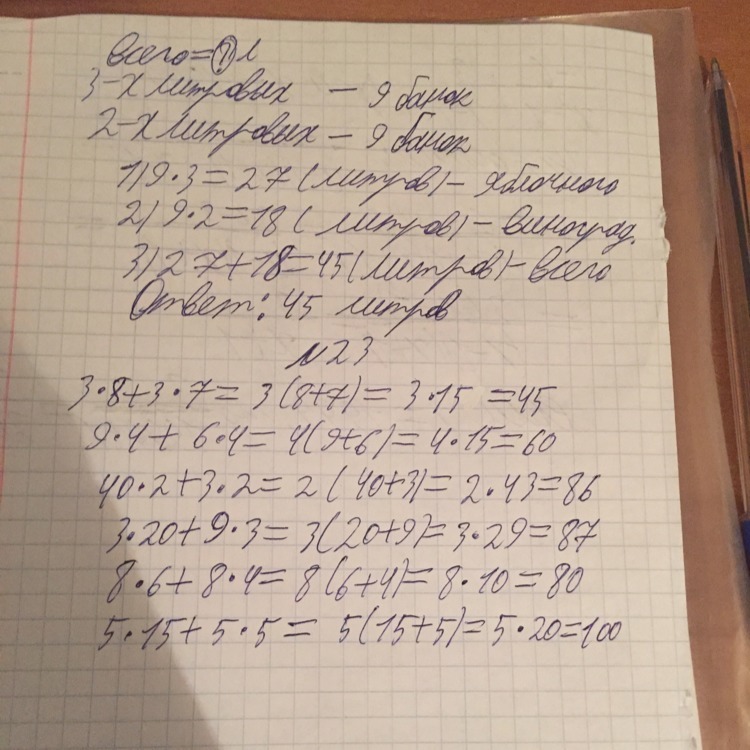 всего = ? л
3-х литровых — 9 банок
2-х литровых — 9 банок
1) 9·3=27 (литров) - яблочного
2) 9·2=18 (литров) - виноград.
3) 27+18=45 (литров) - всего
Ответ: 45 литров
№23
3·8+3·7= 3(8+7)= 3·15 =45
9·4+ 6·4= 4(9+6)= 4·15=60
40·2+3·2= 2(40+3)= 2·43=86
3·20+9·3= 3(20+9)=3·29=87
8·6+8·4= 8(6+4)= 8·10=80
5·15+5·5= 5(15+5)=5·20=100